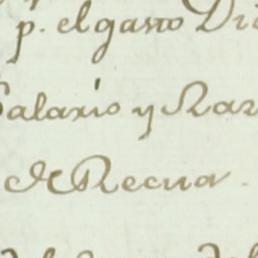 p. el gasto Dia
Salario y Rar
de Recua.